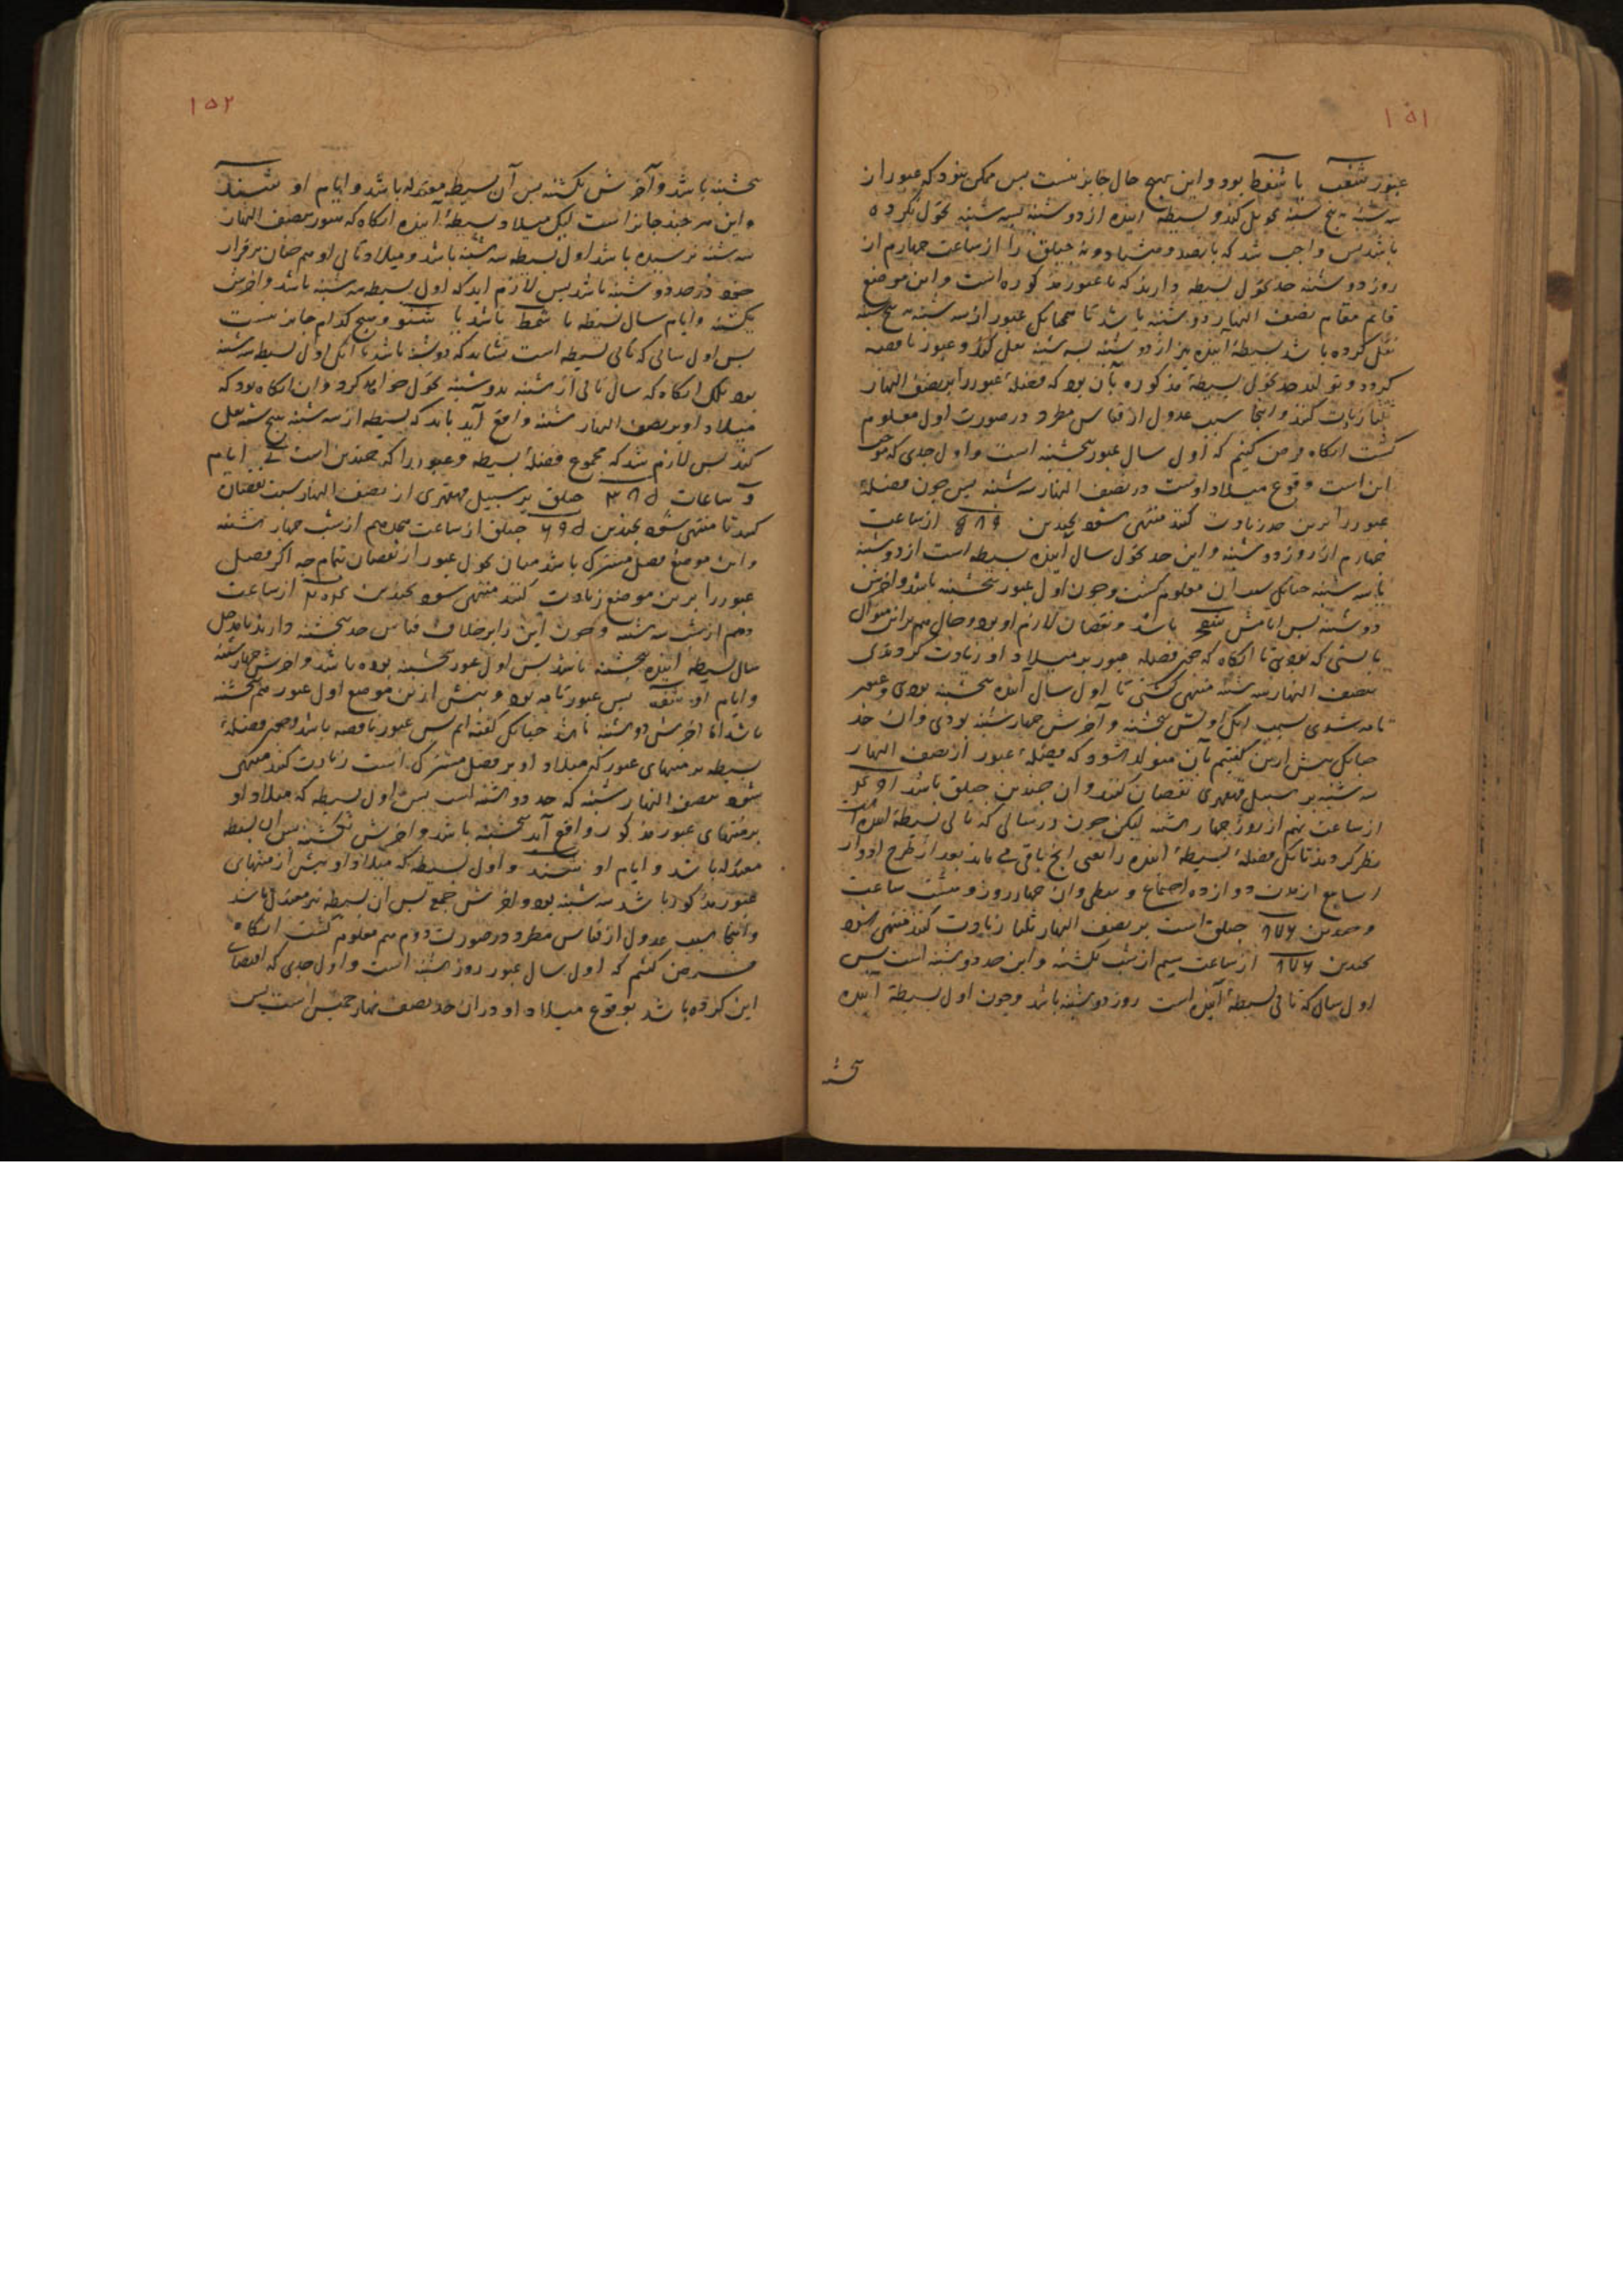 ۱۵۱
عبور شنف یا شنط بود و این بهیچ حال جایز نیست پس ممکن نبود که عبور از
سه شنبه به پنج شنبه تحویل کند و بسیطه آینده از دوشنبه بسه شنبه تحول نکرده
باشد پس واجب شد که پانصد و هشتاد و نه حیلق را از ساعت چهارم از
روز دوشنبه حد تحول بسیطه دارند که با عبور مذکوره است و این موضع
قائم مقام نصف النهار دوشنبه باشد تا همچنانکه عبور از سه شنبه به پنج شنبه
نقل کرده باشد بسیطهٔ آینده نیز از دوشنبه بسه شنبه نقل کند و عبور ناقصه
گردد و تولد حد تحول بسیطهٔ مذکوره بآن بود که فضلهٔ عبور را بر نصف النهار
ثلثا زیادت کنند و اینجا سبب عدول از قیاس مطرد در صورت اول معلوم
گشت آنگاه فرض کنیم که اول سال عبور پنجشنبه است و اول حدی که موجب
این است وقوع میلاد اوست در نصف النهار سه شنبه پس چون فضلهٔ
عبور را برین حد زیادت کنند منتهی شود بچندین ۵۸۹ از ساعت
چهارم از روز دوشنبه و این حد تحول سال آینده بسیطه است از دوشنبه
با سه شنبه چنانکه بعد از آن معلوم گشت و چون اول عبور پنجشنبه باشد و آخرش
دوشنبه پس ایامش شفح باشد و نقصان لازم او بود و حال هم برین منوال
بایستی که بودی تا آنگاه که چون فضله عبور بر میلاد او زیادت کردندی
بنصف النهار سه شنبه منتهی گشتی تا اول سال آینده پنجشنبه بودی و عبور
تامه شدی بسبب آنکه اولش پنجشنبه و آخرش چهارشنبه بودی و آن حد
چنانکه پیش ازین گفتیم بآن متولد شود که فضلهٔ عبور از نصف النهار
سه شنبه بر سبیل قهقری نقصان کنند و آن چندین حیلق باشد
از ساعت نهم از روز چهارشنبه لیکن چون در سالی که تالی بسیطهٔ آینده است
نظر کردند تا بآنکه فضلهٔ بسیطهٔ آینده را یعنی آنچ باقی می ماند بعد از طرح ادوار
اسابیع از مدت دوازده اجتماع وسطی و آن چهار روز و هشت ساعت
و چندین ۸۷۶ حیلق است بر نصف النهار ثلثا زیادت کنند منتهی شود
بچندین ۸۷۶ از ساعت سیم از شب یکشنبه و این حد دوشنبه است پس
اول سال که تالی بسیطهٔ آینده است روز دوشنبه باشد و چون اول بسیطهٔ آینده
۱۵۲
پنجشنبه باشد و آخرش یکشنبه پس آن بسیطه معتدله باشد و ایام او شند
و این هر چند جایز است لیکن میلاد بسیطهٔ آینده آنگاه که هنوز بنصف النهار
سه شنبه نرسیده باشد اول بسیطه سه شنبه باشد و میلاد تالی او هم چنان برقرار
خود در حد دوشنبه باشد پس لازم آید که اول بسیطه سه شنبه باشد و آخرش
یکشنبه و ایام سال بسیطه یا شمط باشد یا شنو و هیچ کدام جایز نیست
پس اول سالی که تالی بسیطه است نشاید که دوشنبه باشد با آنکه اول بسیطه سه شنبه
بود بلکه آنگاه که سال تالی از شنبه بدوشنبه تحول خواهد کرد و آن آنگاه بود که
میلاد او بر نصف النهار شنبه واقع آید باید که بسیطه از سه شنبه به پنج شنبه نقل
کند پس لازم شد که مجموع فضلهٔ بسیطه و عبور را که چندین است ایام
و ساعات حیلق بر سبیل قهقری از نصف النهار سبت نقصان
کنند تا منتهی شود بچندین حیلق از ساعت هجدهم از شب چهارشنبه
و این موضع فصل مشترک باشد میان تحول عبور از نقصان بتمام چه اگر فضل
عبور را برین موضع زیادت کنند منتهی شود بچندین از ساعت
دهم از شب سه شنبه و چون این را بر خلاف قیاس حد پنجشنبه دارند تا مدخل
سال بسیطهٔ آینده پنجشنبه باشد پس اول عبور پنجشنبه بوده باشد و آخرش چهارشنبه
و ایام او شفه پس عبور تامه بود و پیش ازین موضع اول عبور هم پنجشنبه
باشد اما آخرش دوشنبه باشد چنانکه گفته ایم پس عبور ناقصه باشد و چون فضلهٔ
بسیطه بر منتهای عبور که میلاد او بر فصل مشترک است زیادت کنند منتهی
شود بنصف النهار شنبه که حد دوشنبه است پس اول بسیطه که میلاد او
بر منتهای عبور مذکور واقع آید پنجشنبه باشد و آخرش یکشنبه پس آن بسیطه
معتدله باشد و ایام او شند و اول بسیطه که میلاد او پیش از منتهای
عبور مذکور باشد سه شنبه بود و آخرش جمعه پس آن بسیطه نیز معتدل باشد
و اینجا سبب عدول از قیاس مطرد در صورت دوم هم معلوم گشت آنگاه
فرض کنیم که اول سال عبور روز شنبه است و اول حدی که اقتضای
این کرده باشد بوقوع میلاد او در آن حد نصف نهار خمیس است پس